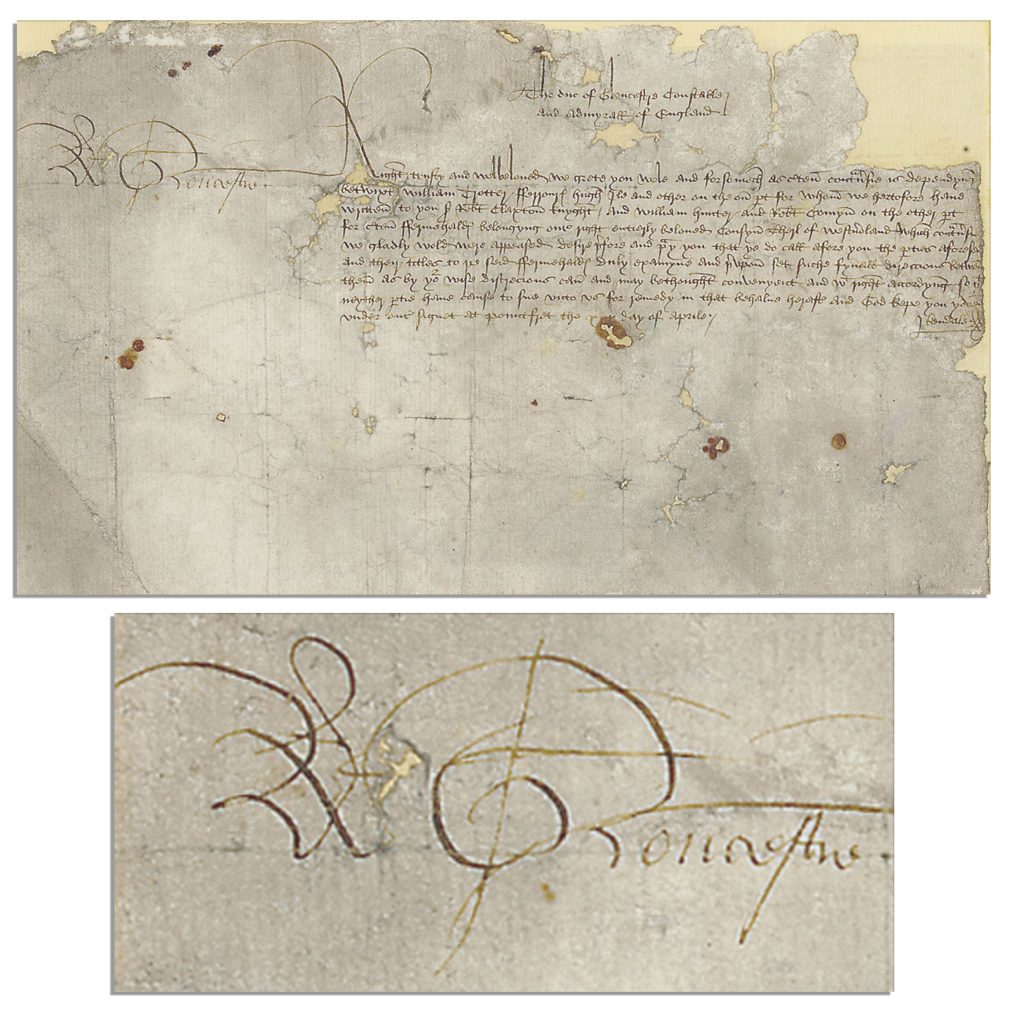 The duc of Gloucestre Constable
and Admyrall of England
R Gloucestre
Right trusty and welbeloued we grete you wele and forsomoch as certen contrùsie is dependyng
betwixt William Trotter hugh Ile and other on the on pt for Whom we hertofore haue
written to you sr Robt Claxton knyght And William hunter and Robt Comyn on the other pt
for certen ffermeholde belongyng our right enterly beloued Cosyn Therl of Westmland which
We gladly wold were appeised desire and pray you that ye do call afore you the pties aforesaid
and their titles to the seid ffermehold duly examyne and set suche fynall direccions betwen
them as by yor wise discrecions can and may bethought convenyent and wt right accordyng so yt
neyther ptie haue cause to sue vnto vs for remedy in that behalue heraft And God kepe you
vnder our signet at Pountfret the day of Aprile
Kendale
R Gloucestre